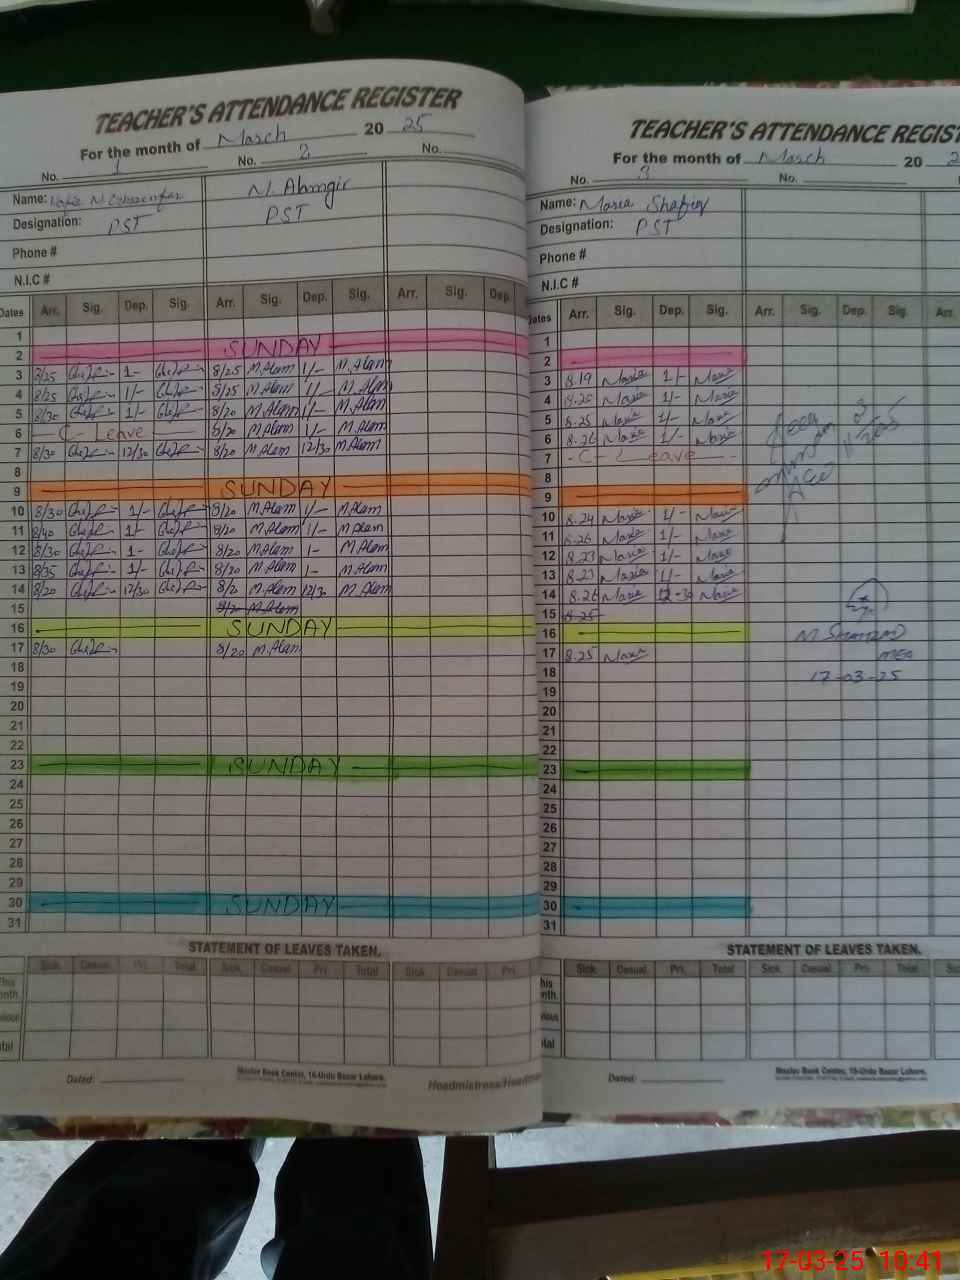 TEACHER'S ATTENDANCE REGISTER
For the month of March 20 25
No. 1 No. 2 No.
Name: M. Alamgir
Designation: PST PST
Phone #
N.I.C #
Dates Arr. Sig. Dep. Sig. Arr. Sig. Dep. Sig. Arr. Sig. Dep.
1
2 SUNDAY
3 8/25 1- 8/25 M.Alam 1/- M.Alam
4 8/25 1/- 8/25 M.Alam 1/- M.Alam
5 8/30 1/- 8/20 M.Alam 1/- M.Alam
6 C Leave 8/20 M.Alam 1/- M.Alam
7 8/30 12/30 8/20 M.Alam 12/30 M.Alam
8
9 SUNDAY
10 8/30 1/- 8/20 M.Alam 1/- M.Alam
11 8/40 1/- 8/20 M.Alam 1/- M.Alam
12 8/30 1- 8/20 M.Alam 1- M.Alam
13 8/35 1/- 8/20 M.Alam 1- M.Alam
14 8/20 12/30 8/2 M.Alam 12/30 M.Alam
15 8/20 M.Alam
16 SUNDAY
17 8/30 8/20 M.Alam
18
19
20
21
22
23 SUNDAY
24
25
26
27
28
29
30 SUNDAY
31
STATEMENT OF LEAVES TAKEN.
Sick. Casual. Pri. Total. Sick. Casual. Pri. Total Sick. Casual. Pri.
This
onth.
vious
otal
Dated:
Master Book Center, 16-Urdu Bazar Lahore.
Headmistress/Headm
TEACHER'S ATTENDANCE REGIST
For the month of March 20 2
No. 3 No.
Name: Maria Shafiq
Designation: PST
Phone #
N.I.C #
Dates Arr. Sig. Dep. Sig. Arr. Sig. Dep. Sig. Arr.
1
2
3 8.19 Maria 1/- Maria
4 8.20 Maria 1/- Maria
5 8.25 Maria 1/- Maria
6 8.26 Maria 1/- Maria
7 -C- Leave -
8
9
10 8.24 Maria 1/- Maria
11 8.26 Maria 1/- Maria
12 8.23 Maria 1/- Maria
13 8.23 Maria 1/- Maria
14 8.26 Maria 12-30 Maria
15 8.25
16
17 8.25 Maria
18
MEA
17-03-25
19
20
21
22
23
24
25
26
27
28
29
30
31
STATEMENT OF LEAVES TAKEN.
Sick. Casual. Pri. Total Sick. Casual. Pri. Total Sic
his
nth.
vious
otal
Dated:
Master Book Center, 16-Urdu Bazar Lahore.
17-03-25 10:41